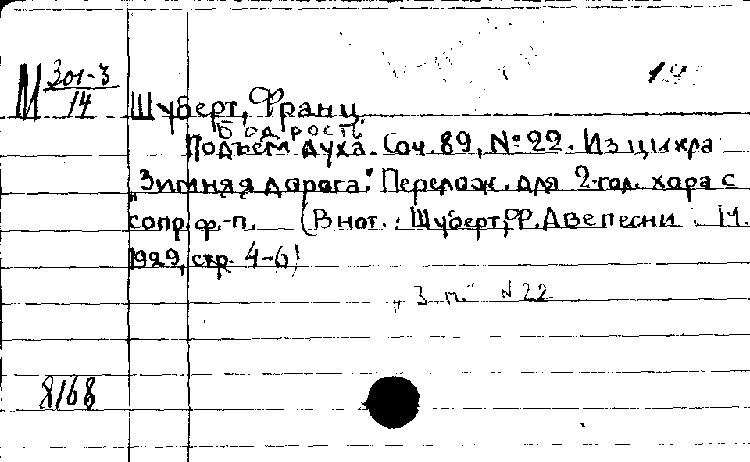 М 301-3/14
Шуберт, Франц.
Бодрость
Подъем духа. Соч. 89, № 22. Из цикла
„Зимняя дорога". Перелож. для 2-гол. хора с
сопр. ф.-п. (В нот.: Шуберт, Ф. Две песни. М.
1929, стр. 4-6)
„З. п." № 22
8168